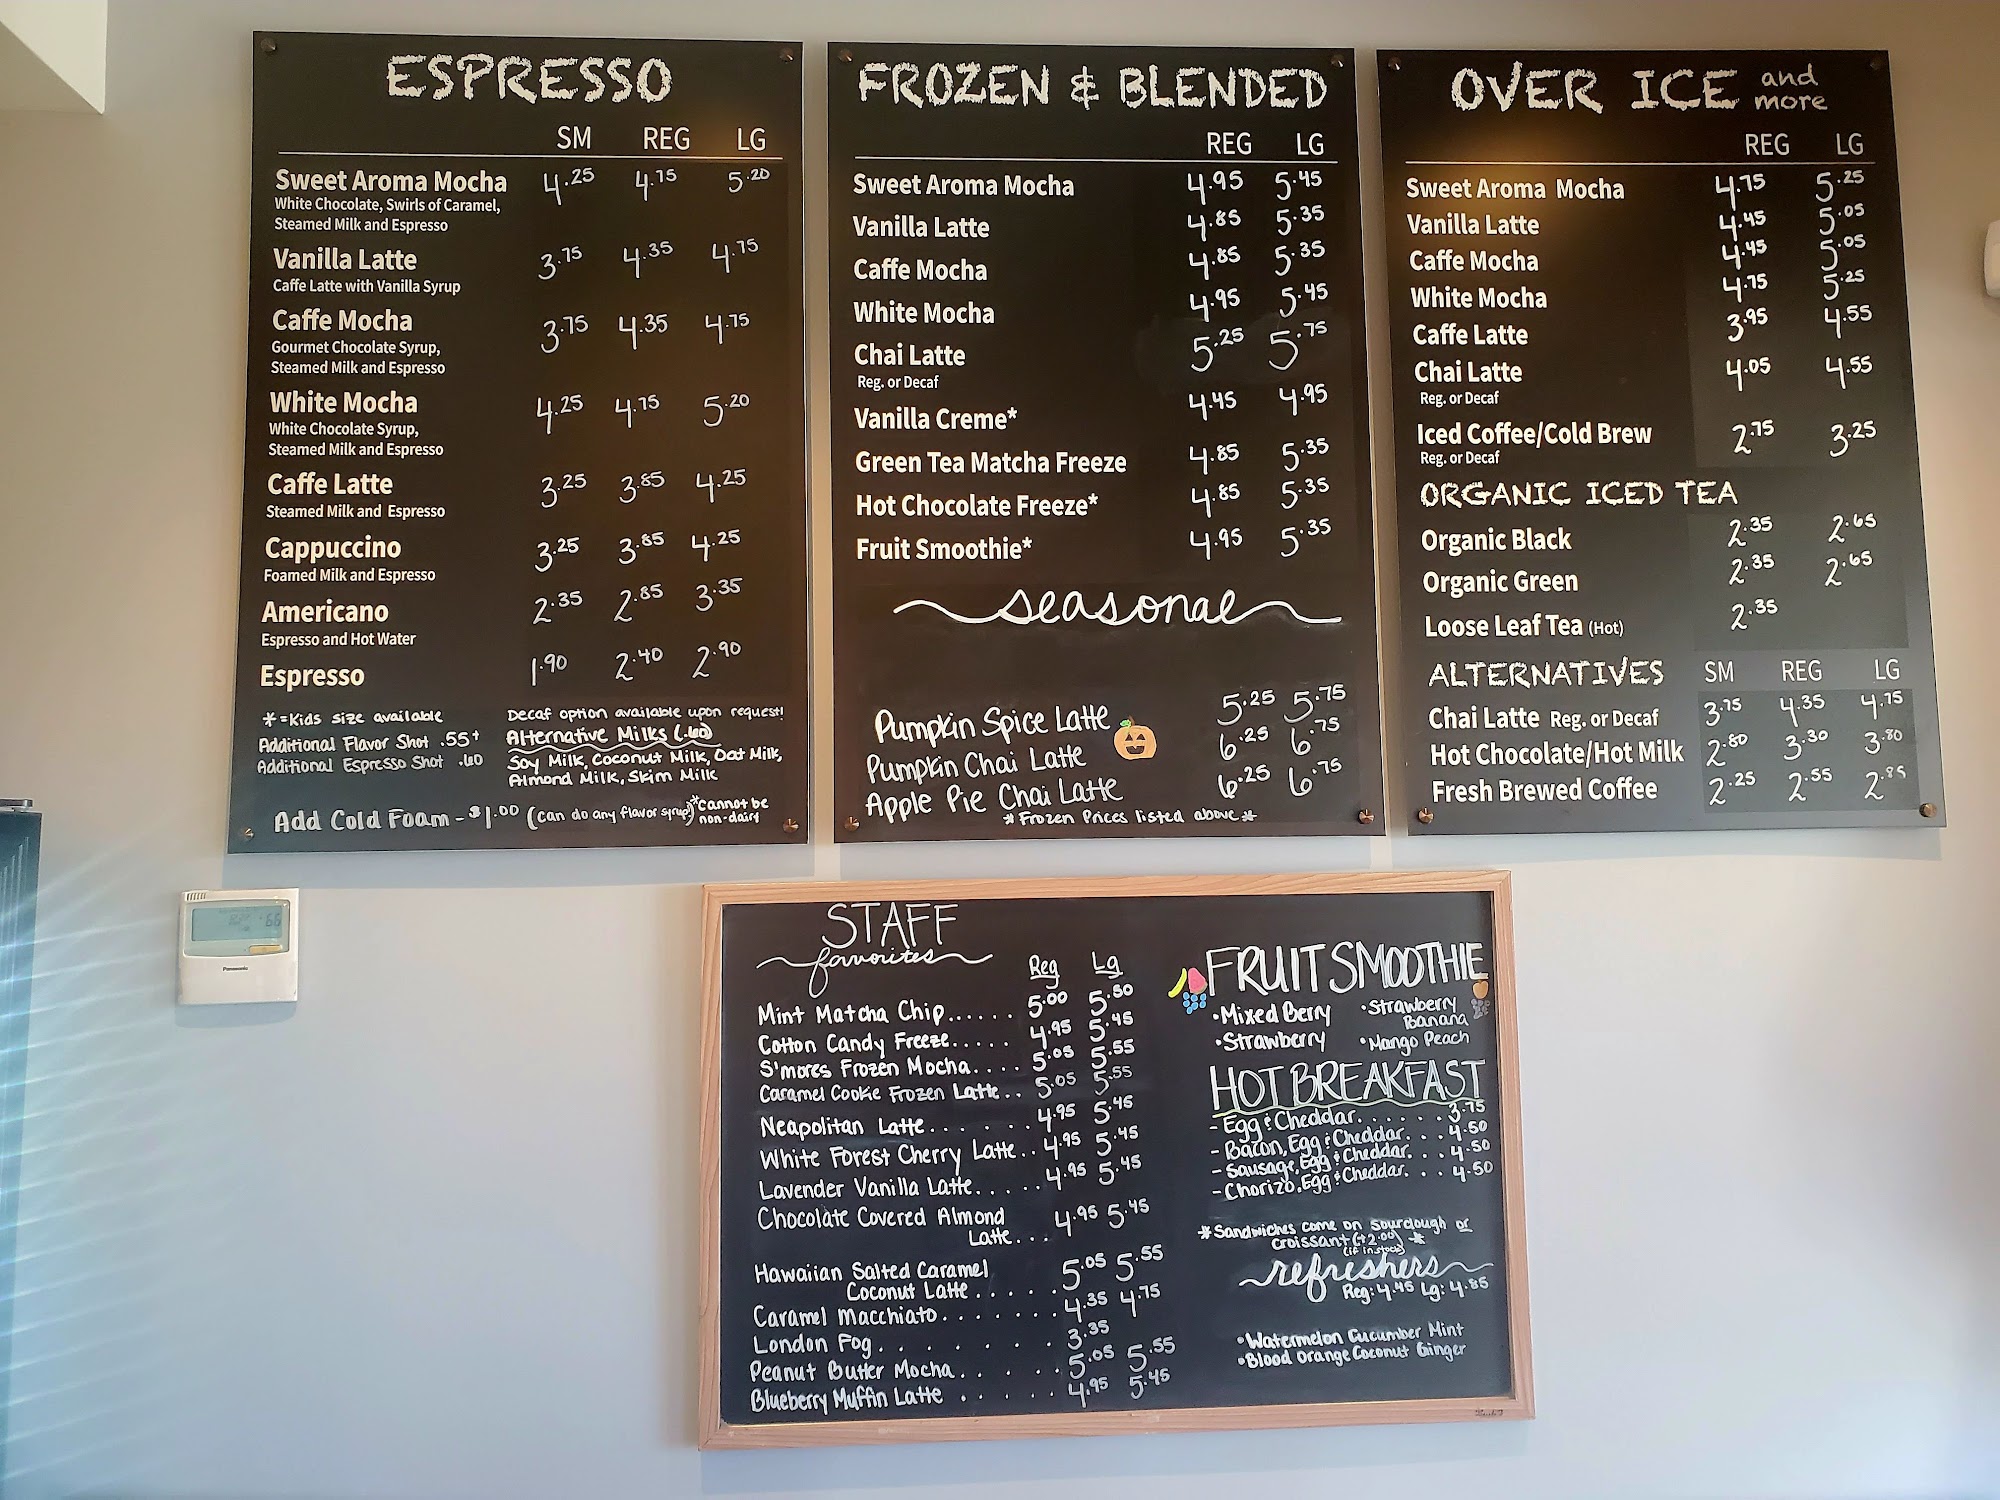 ESPRESSO
SM REG LG
Sweet Aroma Mocha 4.25 4.75 5.20
White Chocolate, Swirls of Caramel,
Steamed Milk and Espresso
Vanilla Latte 3.75 4.35 4.75
Caffe Latte with Vanilla Syrup
Caffe Mocha 3.75 4.35 4.75
Gourmet Chocolate Syrup,
Steamed Milk and Espresso
White Mocha 4.25 4.75 5.20
White Chocolate Syrup,
Steamed Milk and Espresso
Caffe Latte 3.25 3.85 4.25
Steamed Milk and Espresso
Cappuccino 3.25 3.85 4.25
Foamed Milk and Espresso
Americano 2.35 2.85 3.35
Espresso and Hot Water
Espresso 1.90 2.40 2.90
*=Kids size available
Additional Flavor Shot .55+
Additional Espresso Shot .60
Decaf option available upon request!
Alternative Milks (.60)
Soy Milk, Coconut Milk, Oat Milk,
Almond Milk, Skim Milk
Add Cold Foam - $1.00 (can do any flavor syrup) *cannot be
non-dairy
FROZEN & BLENDED
REG LG
Sweet Aroma Mocha 4.95 5.45
Vanilla Latte 4.85 5.35
Caffe Mocha 4.85 5.35
White Mocha 4.95 5.45
Chai Latte 5.25 5.75
Reg. or Decaf
Vanilla Creme* 4.45 4.95
Green Tea Matcha Freeze 4.85 5.35
Hot Chocolate Freeze* 4.85 5.35
Fruit Smoothie* 4.95 5.35
seasonal
Pumpkin Spice Latte 5.25 5.75
Pumpkin Chai Latte 6.25 6.75
Apple Pie Chai Latte 6.25 6.75
*Frozen Prices listed above*
OVER ICE and
more
REG LG
Sweet Aroma Mocha 4.75 5.25
Vanilla Latte 4.45 5.05
Caffe Mocha 4.45 5.05
White Mocha 4.75 5.25
Caffe Latte 3.95 4.55
Chai Latte 4.05 4.55
Reg. or Decaf
Iced Coffee/Cold Brew 2.75 3.25
Reg. or Decaf
ORGANIC ICED TEA
Organic Black 2.35 2.65
Organic Green 2.35 2.65
Loose Leaf Tea (Hot) 2.35
ALTERNATIVES SM REG LG
Chai Latte Reg. or Decaf 3.75 4.35 4.75
Hot Chocolate/Hot Milk 2.80 3.30 3.80
Fresh Brewed Coffee 2.25 2.55 2.85
Panasonic
STAFF
favorites
Reg Lg
Mint Matcha Chip...... 5.00 5.50
Cotton Candy Freeze..... 4.95 5.45
S'mores Frozen Mocha.... 5.05 5.55
Caramel Cookie Frozen Latte.. 5.05 5.55
Neapolitan Latte....... 4.95 5.45
White Forest Cherry Latte.. 4.95 5.45
Lavender Vanilla Latte..... 4.95 5.45
Chocolate Covered Almond
Latte... 4.95 5.45
Hawaiian Salted Caramel
Coconut Latte...... 5.05 5.55
Caramel Macchiato....... 4.35 4.75
London Fog......... 3.35
Peanut Butter Mocha..... 5.05 5.55
Blueberry Muffin Latte ..... 4.95 5.45
FRUIT SMOOTHIE
•Mixed Berry
•Strawberry
•Strawberry
Banana
•Mango Peach
HOT BREAKFAST
- Egg & Cheddar....... 3.75
- Bacon, Egg & Cheddar... 4.50
- Sausage, Egg & Cheddar... 4.50
- Chorizo, Egg & Cheddar... 4.50
*Sandwiches come on sourdough or
croissant (+2.00) *
(if in stock)
refreshers
Reg: 4.45 Lg: 4.85
•Watermelon Cucumber Mint
•Blood Orange Coconut Ginger